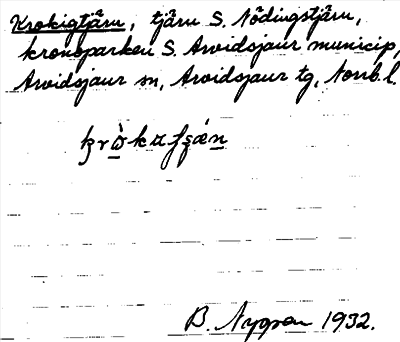 Krokigtjärn, tjärn S. Nödingstjärn,
kronoparken S. Arvidsjaur municip,
Arvidsjaur sn, Arvidsjaur tg, Norrb. l.
B. Nygren 1932.